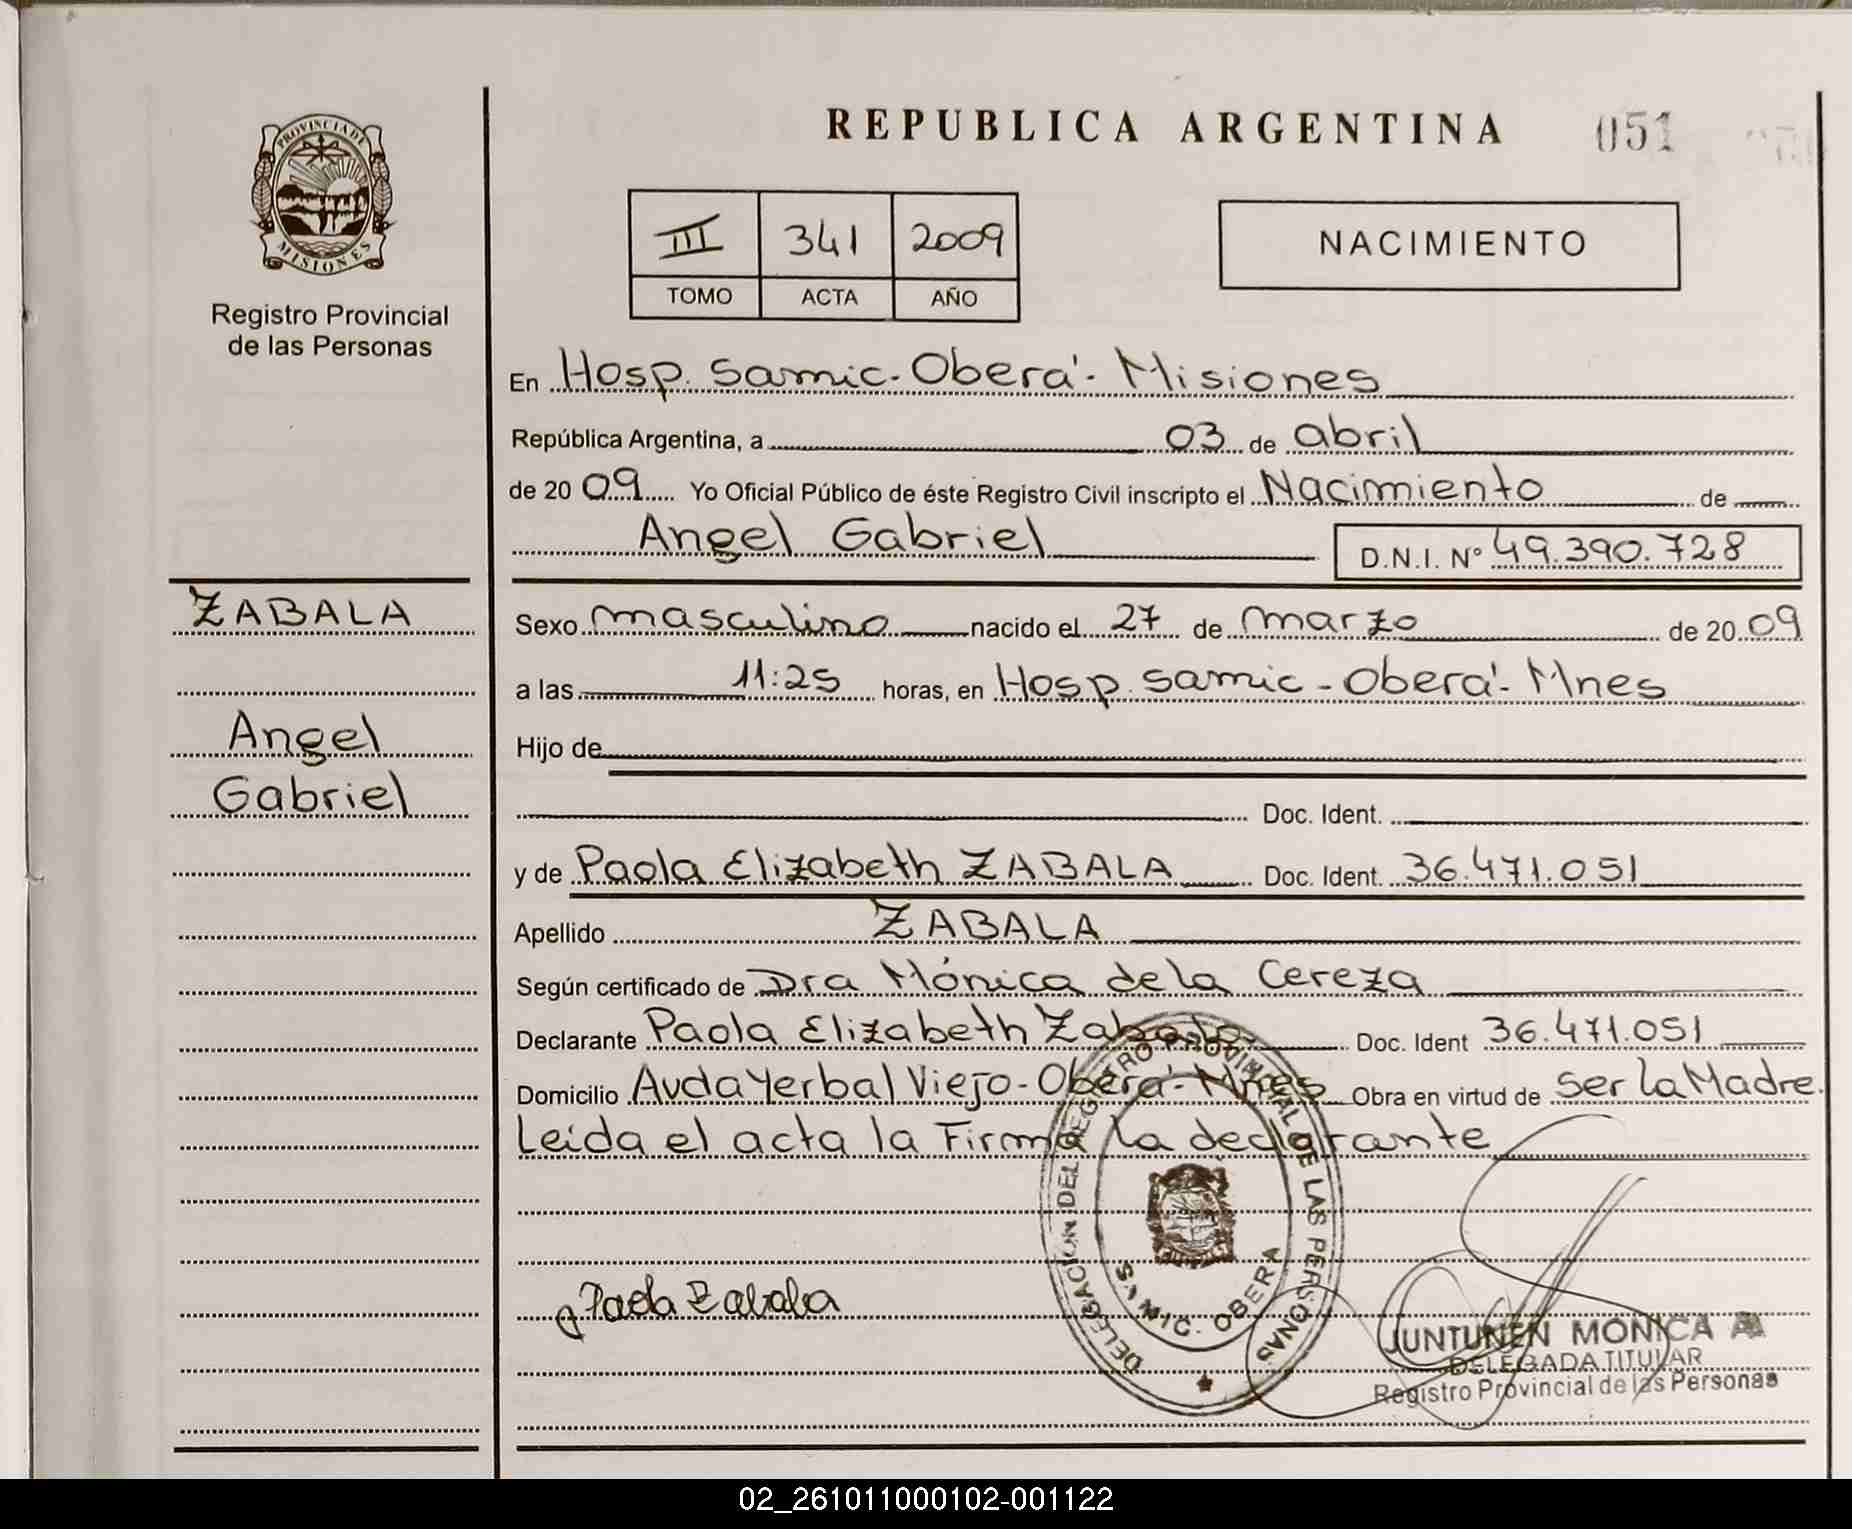 REPUBLICA ARGENTINA 051
PROVINCIA DE MISIONES
Registro Provincial
de las Personas
III 341 2009
TOMO ACTA AÑO
NACIMIENTO
En Hosp. Samic - Oberá - Misiones
República Argentina, a 03 de abril
de 20 09 Yo Oficial Público de éste Registro Civil inscripto el Nacimiento de
Angel Gabriel D.N.I. Nº 49.390.728
ZABALA
Angel
Gabriel
Sexo masculino nacido el 27 de marzo de 20 09
a las 11:25 horas, en Hosp. Samic - Oberá - Mnes
Hijo de
Doc. Ident.
y de Paola Elizabeth ZABALA Doc. Ident. 36.471.051
Apellido ZABALA
Según certificado de Dra Mónica de la Cereza
Declarante Paola Elizabeth Zabala Doc. Ident 36.471.051
Domicilio Avda Yerbal Viejo - Oberá - Mnes Obra en virtud de ser la Madre.
Leída el acta la Firma la declarante
Paola Zabala
DELEGACION DEL REGISTRO PROVINCIAL DE LAS PERSONAS
OBERA
JUNTUNEN MONICA A
DELEGADA TITULAR
Registro Provincial de las Personas
02_261011000102-001122